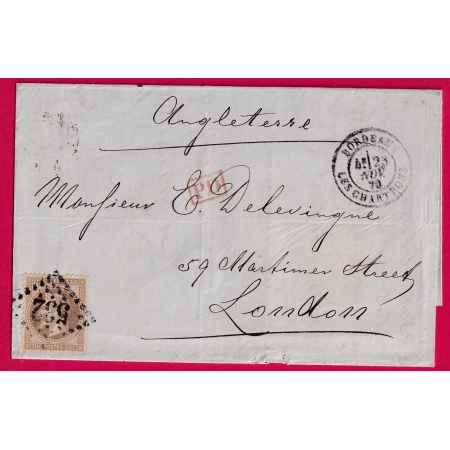 Angleterre
BORDEAUX
23
NOV
70
LES CHARTRONS
PD
Monsieur E. Delevingne
59 Martimer Street
London
532